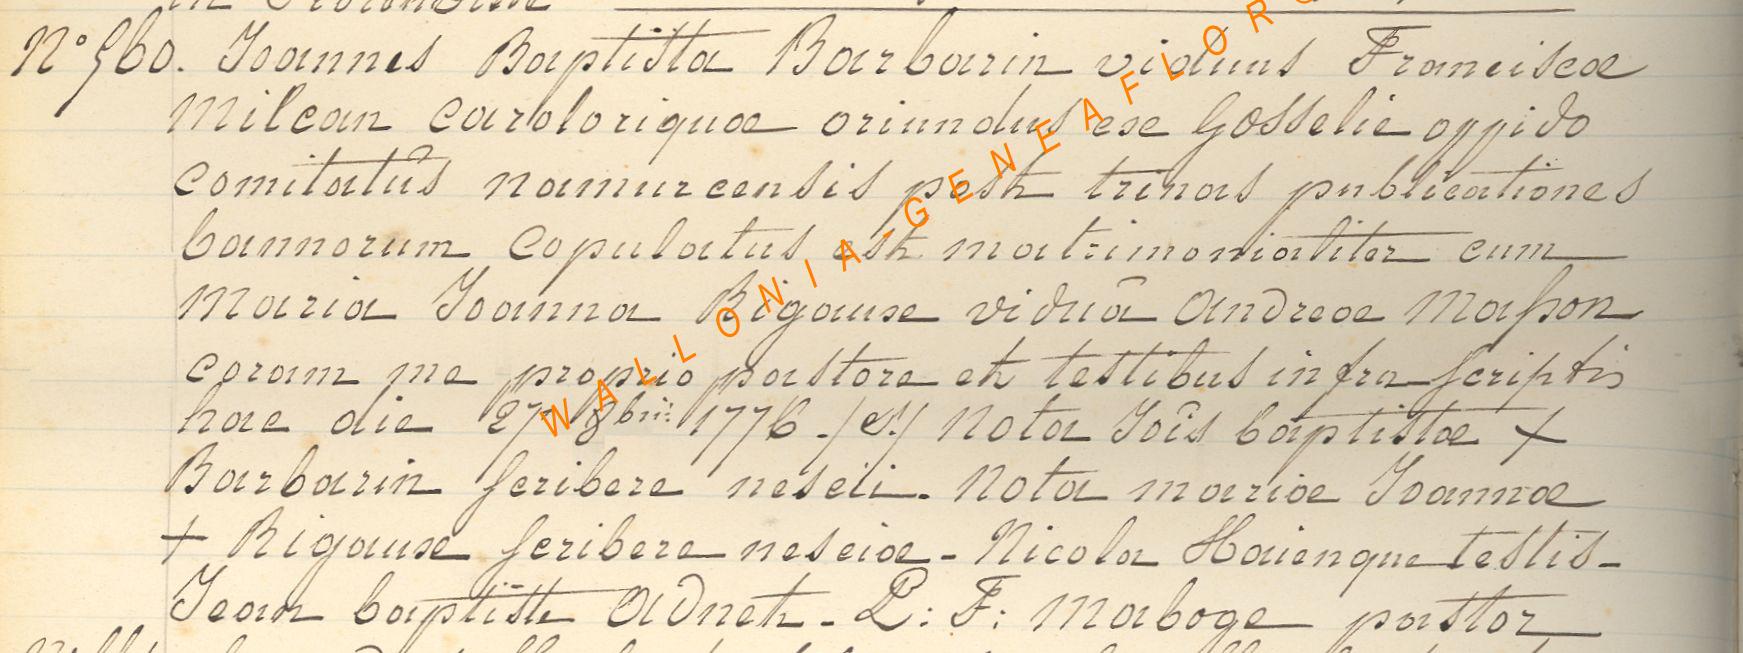 N° 560. Joannes Baptista Barbarin viduus Franciscæ
Milcan caroloriquæ oriundus exe Gosselie oppido
comitatûs namurcensis post trinas publicationes
bannorum copulatus est matrimonialiter cum
Maria Joanna Rigause viduâ Andreæ Masson
coram me proprio pastore et testibus infra scriptis
hac die 27 8bris 1776 . /s./ Nota Joîs baptistæ +
Barbarin scribere nescii. Nota mariæ Joannæ
+ Rigause scribere nesciæ - Nicola Haienque testis -
Jean baptiste Adnet - L: F: Maboge pastor
WALLONIA-GENEAFLOR